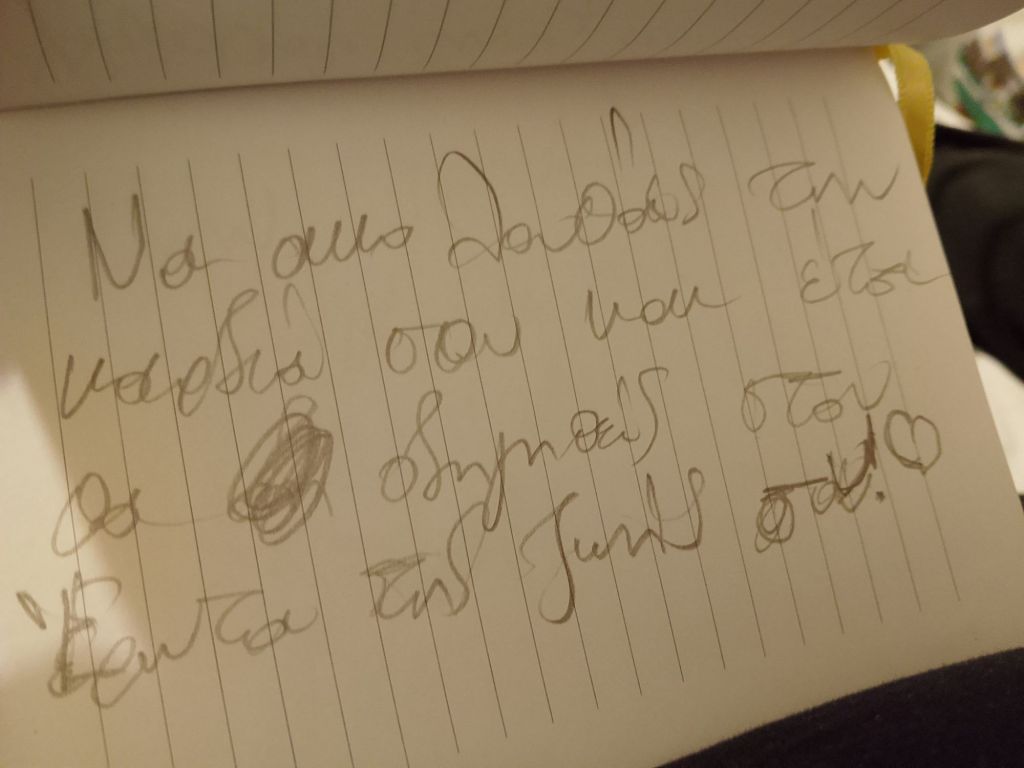 Να ακολουθάς την
καρδιά σου και έτσι
θα οδηγηθείς στον
έρωτα της ζωής σου! ♡